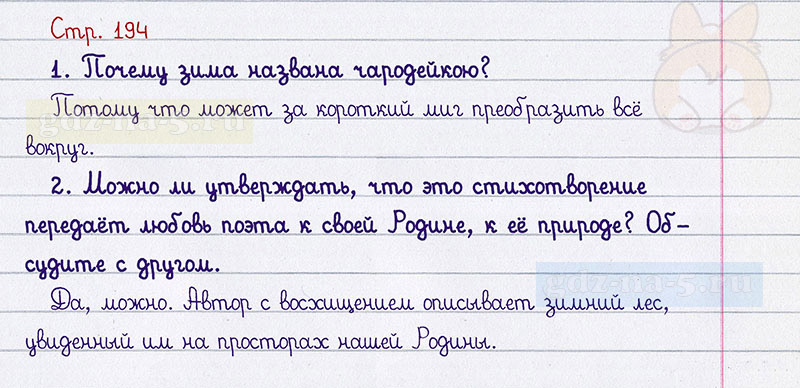 Стр. 194
1. Почему зима названа чародейкою?
Потому что может за короткий миг преобразить всё
gdz-na-5.ru
вокруг.
2. Можно ли утверждать, что это стихотворение
передаёт любовь поэта к своей Родине, к её природе? Об-
судите с другом.
gdz-na-5.ru
Да, можно. Автор с восхищением описывает зимний лес,
увиденный им на просторах нашей Родины.